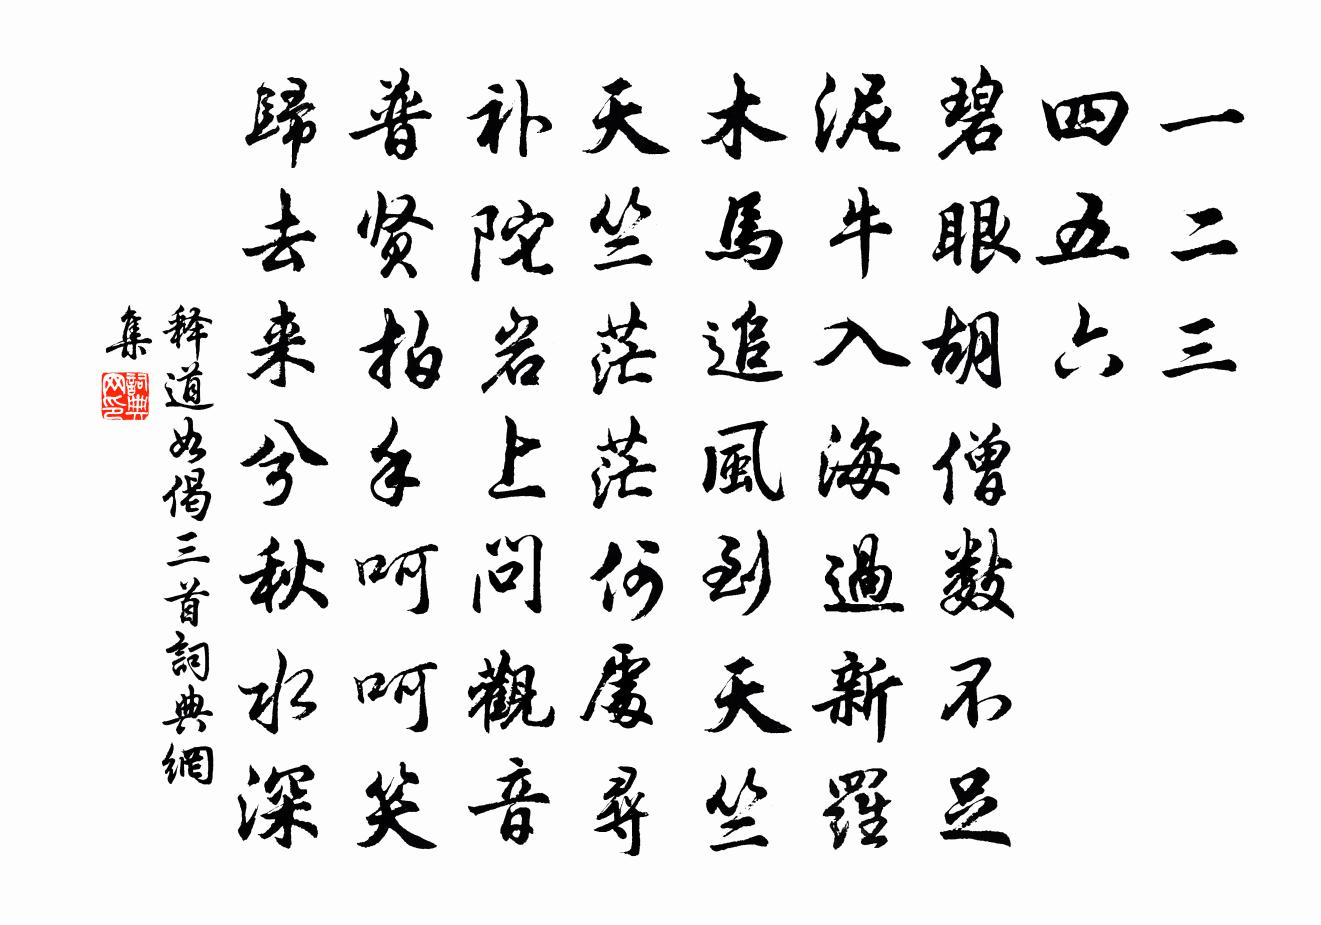 一二三
四五六
碧眼胡僧数不足
泥牛入海過新羅
木馬追風到天竺
天竺茫茫何處尋
补陀岩上問觀音
普贤拍手呵呵笑
歸去来兮秋水深
释道如偈三首詞典網
集
詞典
网印